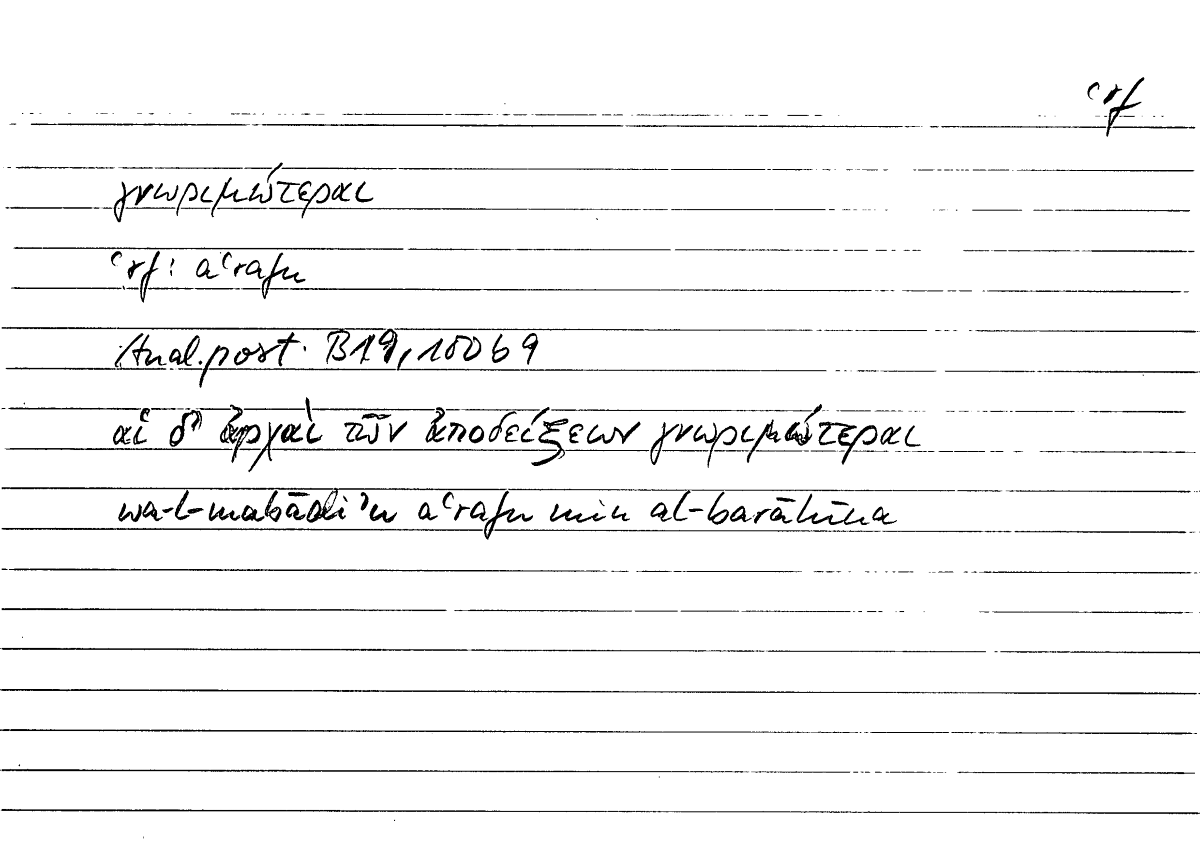 ʿrf
γνωριμώτεραι
ʿrf: aʿrafu
Anal.post. B19, 100b9
αἱ δ' ἀρχαὶ τῶν ἀποδείξεων γνωριμώτεραι
wa-l-mabādiʾu aʿrafu min al-barāhīna